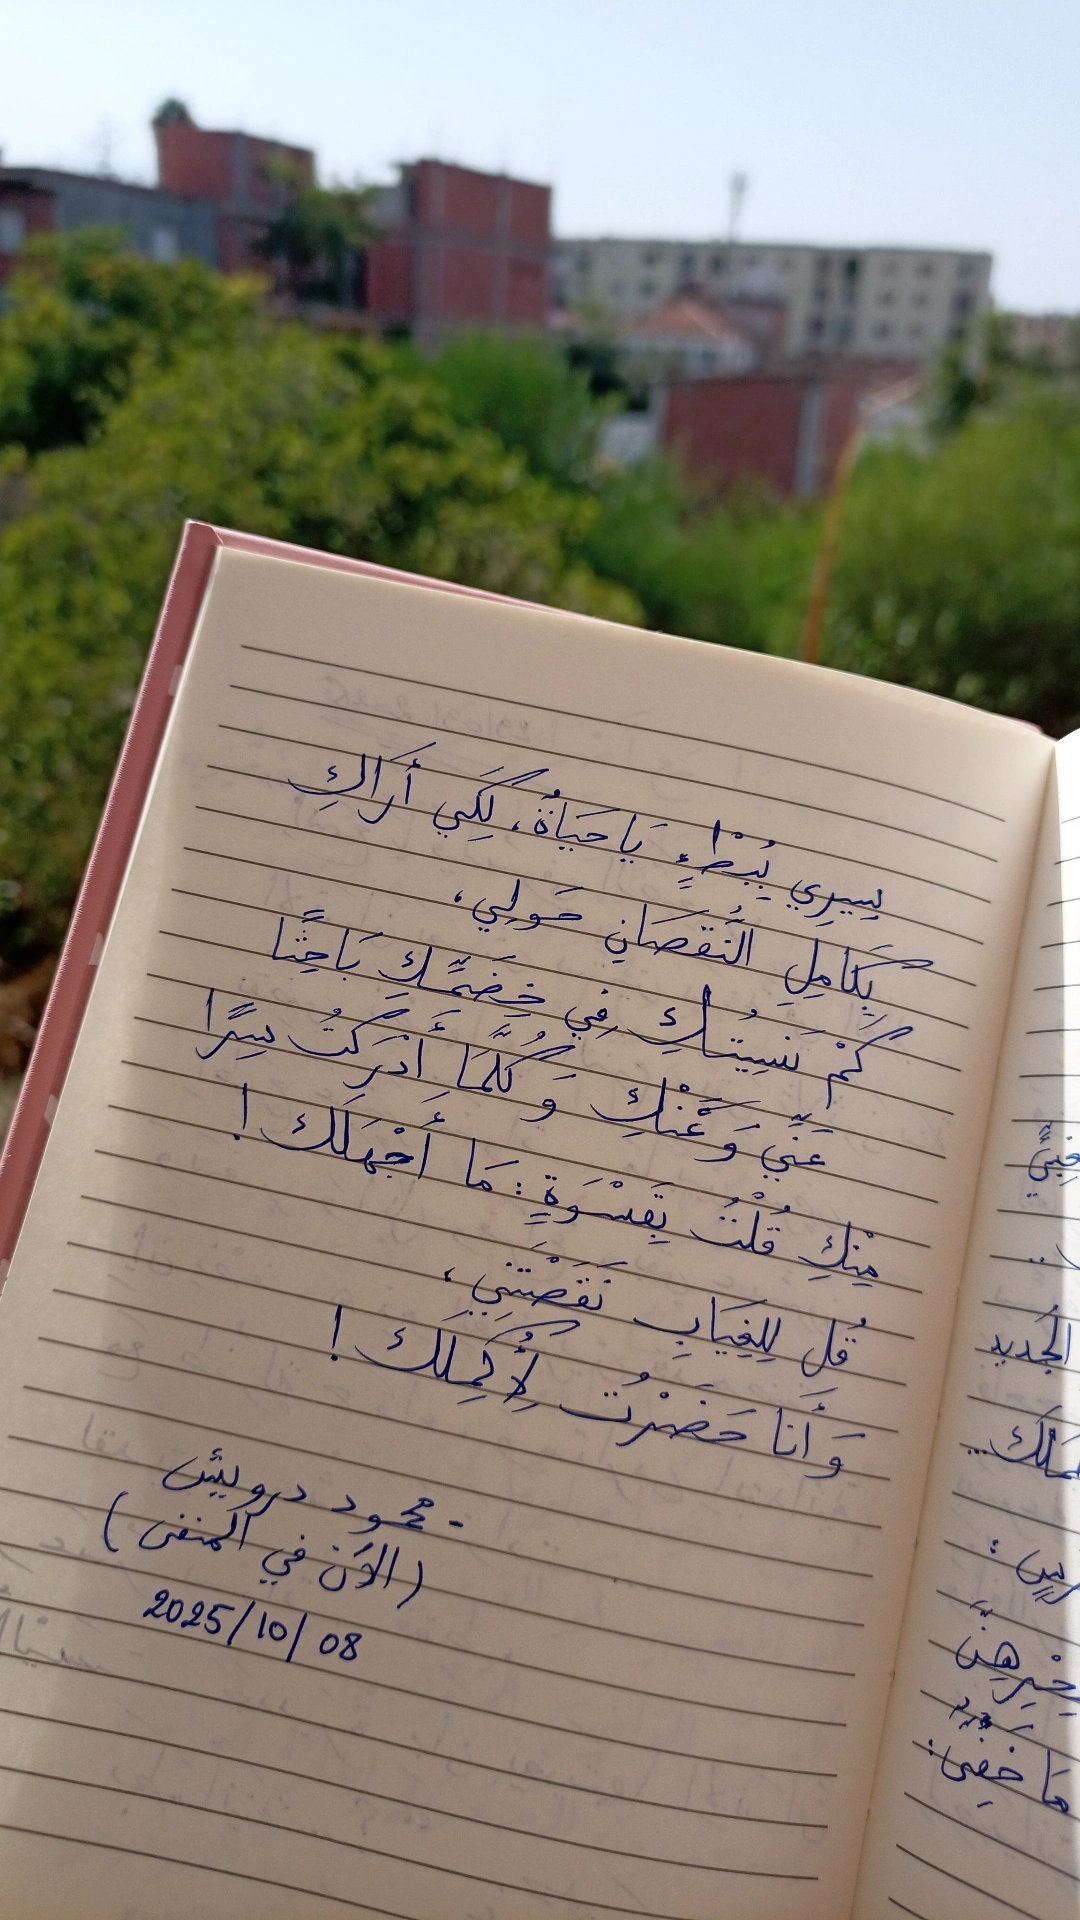 سِيرِي بِبُطْءٍ يَا حَيَاةُ، لِكَي أَرَاكِ
بِكَامِلِ النُّقصَانِ حَولِي،
كَمْ نَسِيتُكِ فِي خِضَمِّكِ بَاحِثًا
عَنِّي وَعَنْكِ وَكُلَّمَا أَدْرَكتُ سِرًّا
مِنْكِ قُلْتُ بِقَسْوَةٍ: مَا أَجْهَلَك!
قُل لِلغِيَابِ نَقَصْتَنِي،
وَأَنا حَضَرْتُ لِأُكمِلَك!
- محمود درويش
(الآن في المنفى)
2025/10/08
الجديد
مَا خَفِيَ: